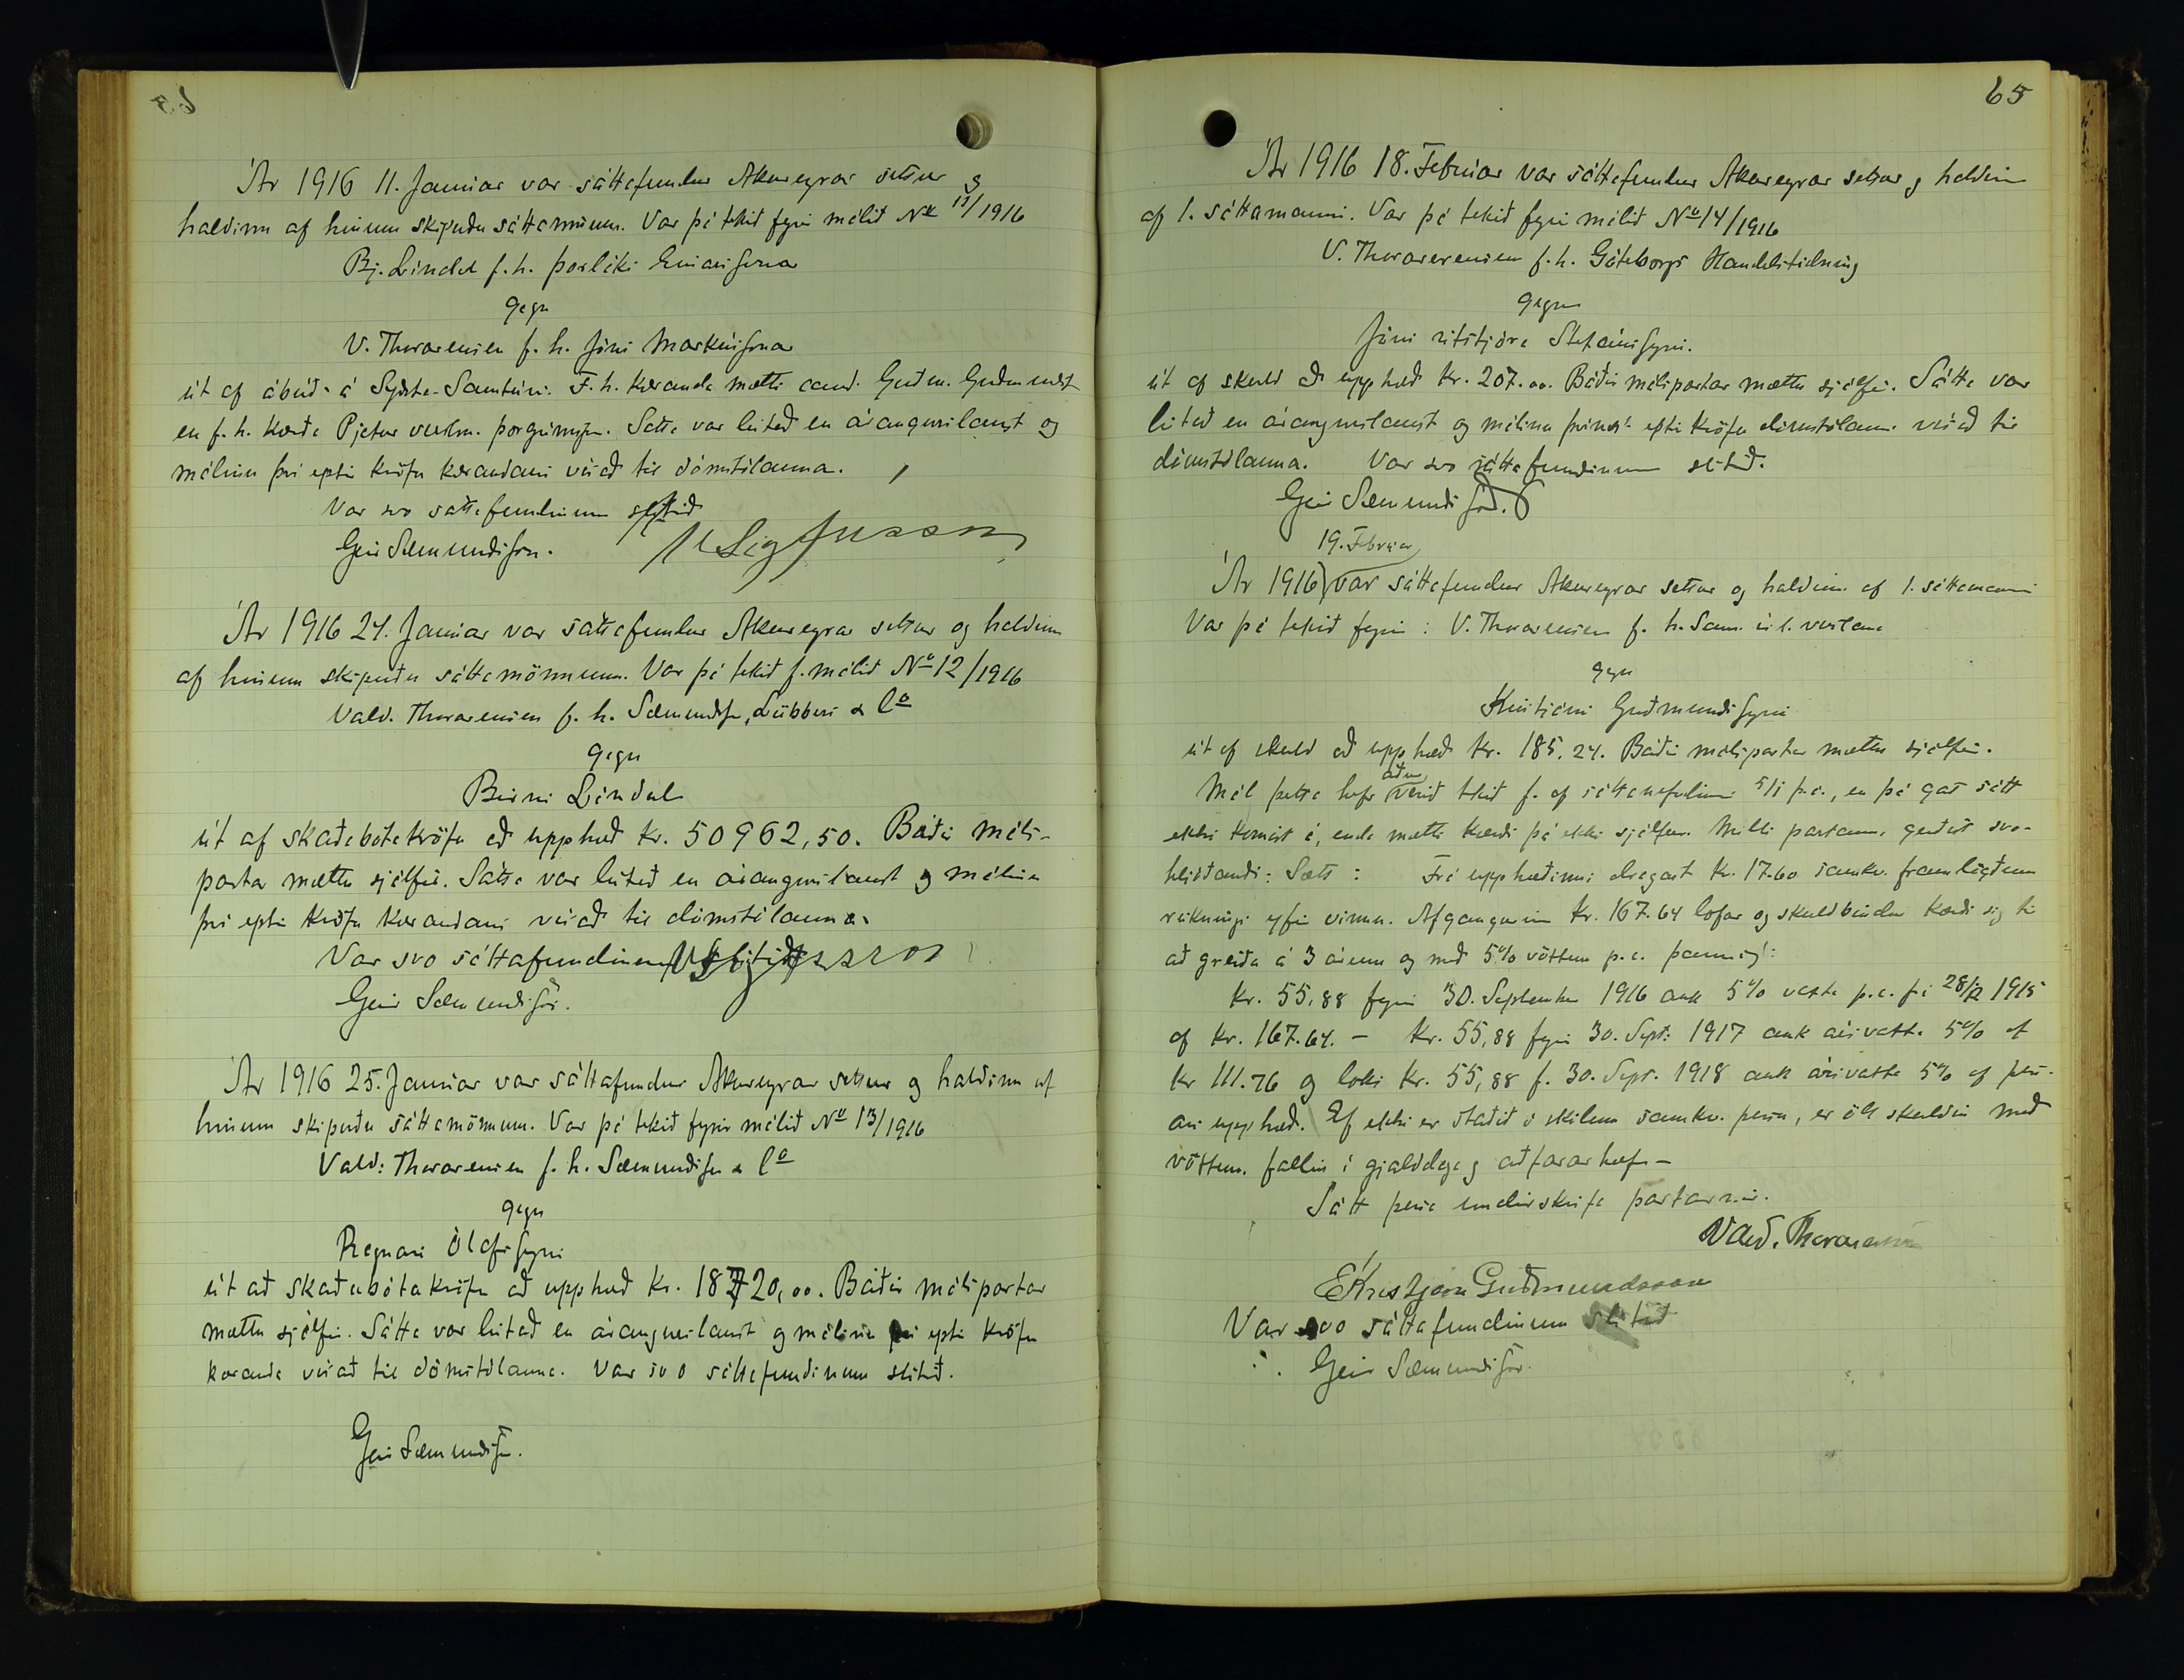 Ár 1916 11. Janúar var sáttafundur Akureyrar settur og
haldinn af hinum skipuðu sáttamönnum. Var þá tekið fyrir málið No 11/1916
Bj. Líndal f. h. Þorláki Einarssonar
gegn
V. Thorarensen f. h. Jóns Markússonar
út af ábúð á Syðsta-Samtúni. F. h. kæranda mætti cand. Guðm. Guðmundss.
en f. h. kærða Pjetur verslm. Þorgrímss. Sátta var leitað en árangurslaust og
málinu því eptir kröfu kærandans vísað til dómstólanna.
Var svo sáttafundinum slitið
Geir Sæmundsson. Sigfússon
Ár 1916 24. Janúar var sáttafundur Akureyrar settur og haldinn
af hinum skipuðu sáttamönnum. Var þá tekið f. málið No 12/1916
Vald. Thorarensen f. h. Sæmundsen, Lübbers & Co
gegn
Birni Líndal
út af skaðabótakröfu að upphæð kr. 50962,50. Báðir máls-
partar mættu sjálfir. Sátta var leitað en árangurslaust og málinu
því eptir kröfu kærandans vísað til dómstólanna.
Var svo sáttafundinum slitið
Geir Sæmundsson.
Ár 1916 25. Janúar var sáttafundur Akureyrar settur og haldinn af
hinum skipuðu sáttamönnum. Var þá tekið fyrir málið No 13/1916
Vald: Thorarensen f. h. Sæmundsen & Co
gegn
Ragnari Ólafssyni
út að skaðabótakröfu að upphæð kr. 18720,00. Báðir málspartar
mættu sjálfir. Sátta var leitað en árangurslaust og málinu því eptir kröfu
kæranda vísað til dómstólanna. Var svo sáttafundinum slitið.
Geir Sæmundsson.
65
Ár 1916 18. Febrúar var sáttafundur Akureyrar settur og haldinn
af 1. sáttamanni. Var þá tekið fyrir málið No 14/1916
V. Thorarensen f. h. Göteborgs Handelstidning
gegn
Jóni ritstjóra Stefánssyni.
út af skuld að upphæð kr. 207.00. Báðir málspartar mættu sjálfir. Sátta var
leitað en árangurslaust og málinu eptir kröfu vísað til
dómstólanna. Var svo sáttafundinum slitið.
Geir Sæmundsson.
19. Febrúar
Ár 1916 var sáttafundur Akureyrar settur og haldinn af 1. sáttamanni
Var þá tekið fyrir: V. Thorarensen f. h. Sam. ísl. verslana
gegn
Kristjáni Guðmundssyni
út af skuld að upphæð kr. 185.24. Báðir málspartar mættu sjálfir.
áður
Mál þetta hefir verið tekið f. af sáttanefndinni 5/1 þ.á., en þá gat sátt
ekki komist á, enda mætti kærði þá ekki sjálfur. Milli partanna gerðist svo-
hljóðandi: Sætt: Frá upphæðinni dragast kr. 17.60 samkv. framlögðum
reikningi yfir vinnu. Afganginn kr. 167.64 lofar og skuldbindur kærði sig til
að greiða á 3 árum og með 5% vöxtum p.a. þannig:
Kr. 55,88 fyrir 30. September 1916 auk 5% vaxta p.a. frá 28/12 1915
af kr. 167.64. – Kr. 55,88 fyrir 30. Sept: 1917 auk ársvaxta 5% af
kr 111.76 og loks kr. 55,88 f. 30. Sept. 1918 auk ársvaxta 5% af þess-
ari upphæð. Ef ekki er staðið í skilum samkv. þessu, er öll skuldin með
vöxtum fallin í gjalddaga og aðfararhæf. –
Sátt þessa undirskrifa partarnir.
Vald. Thorarensen
E Kristján Guðmundsson
Var svo sáttafundinum slitið
Geir Sæmundsson.